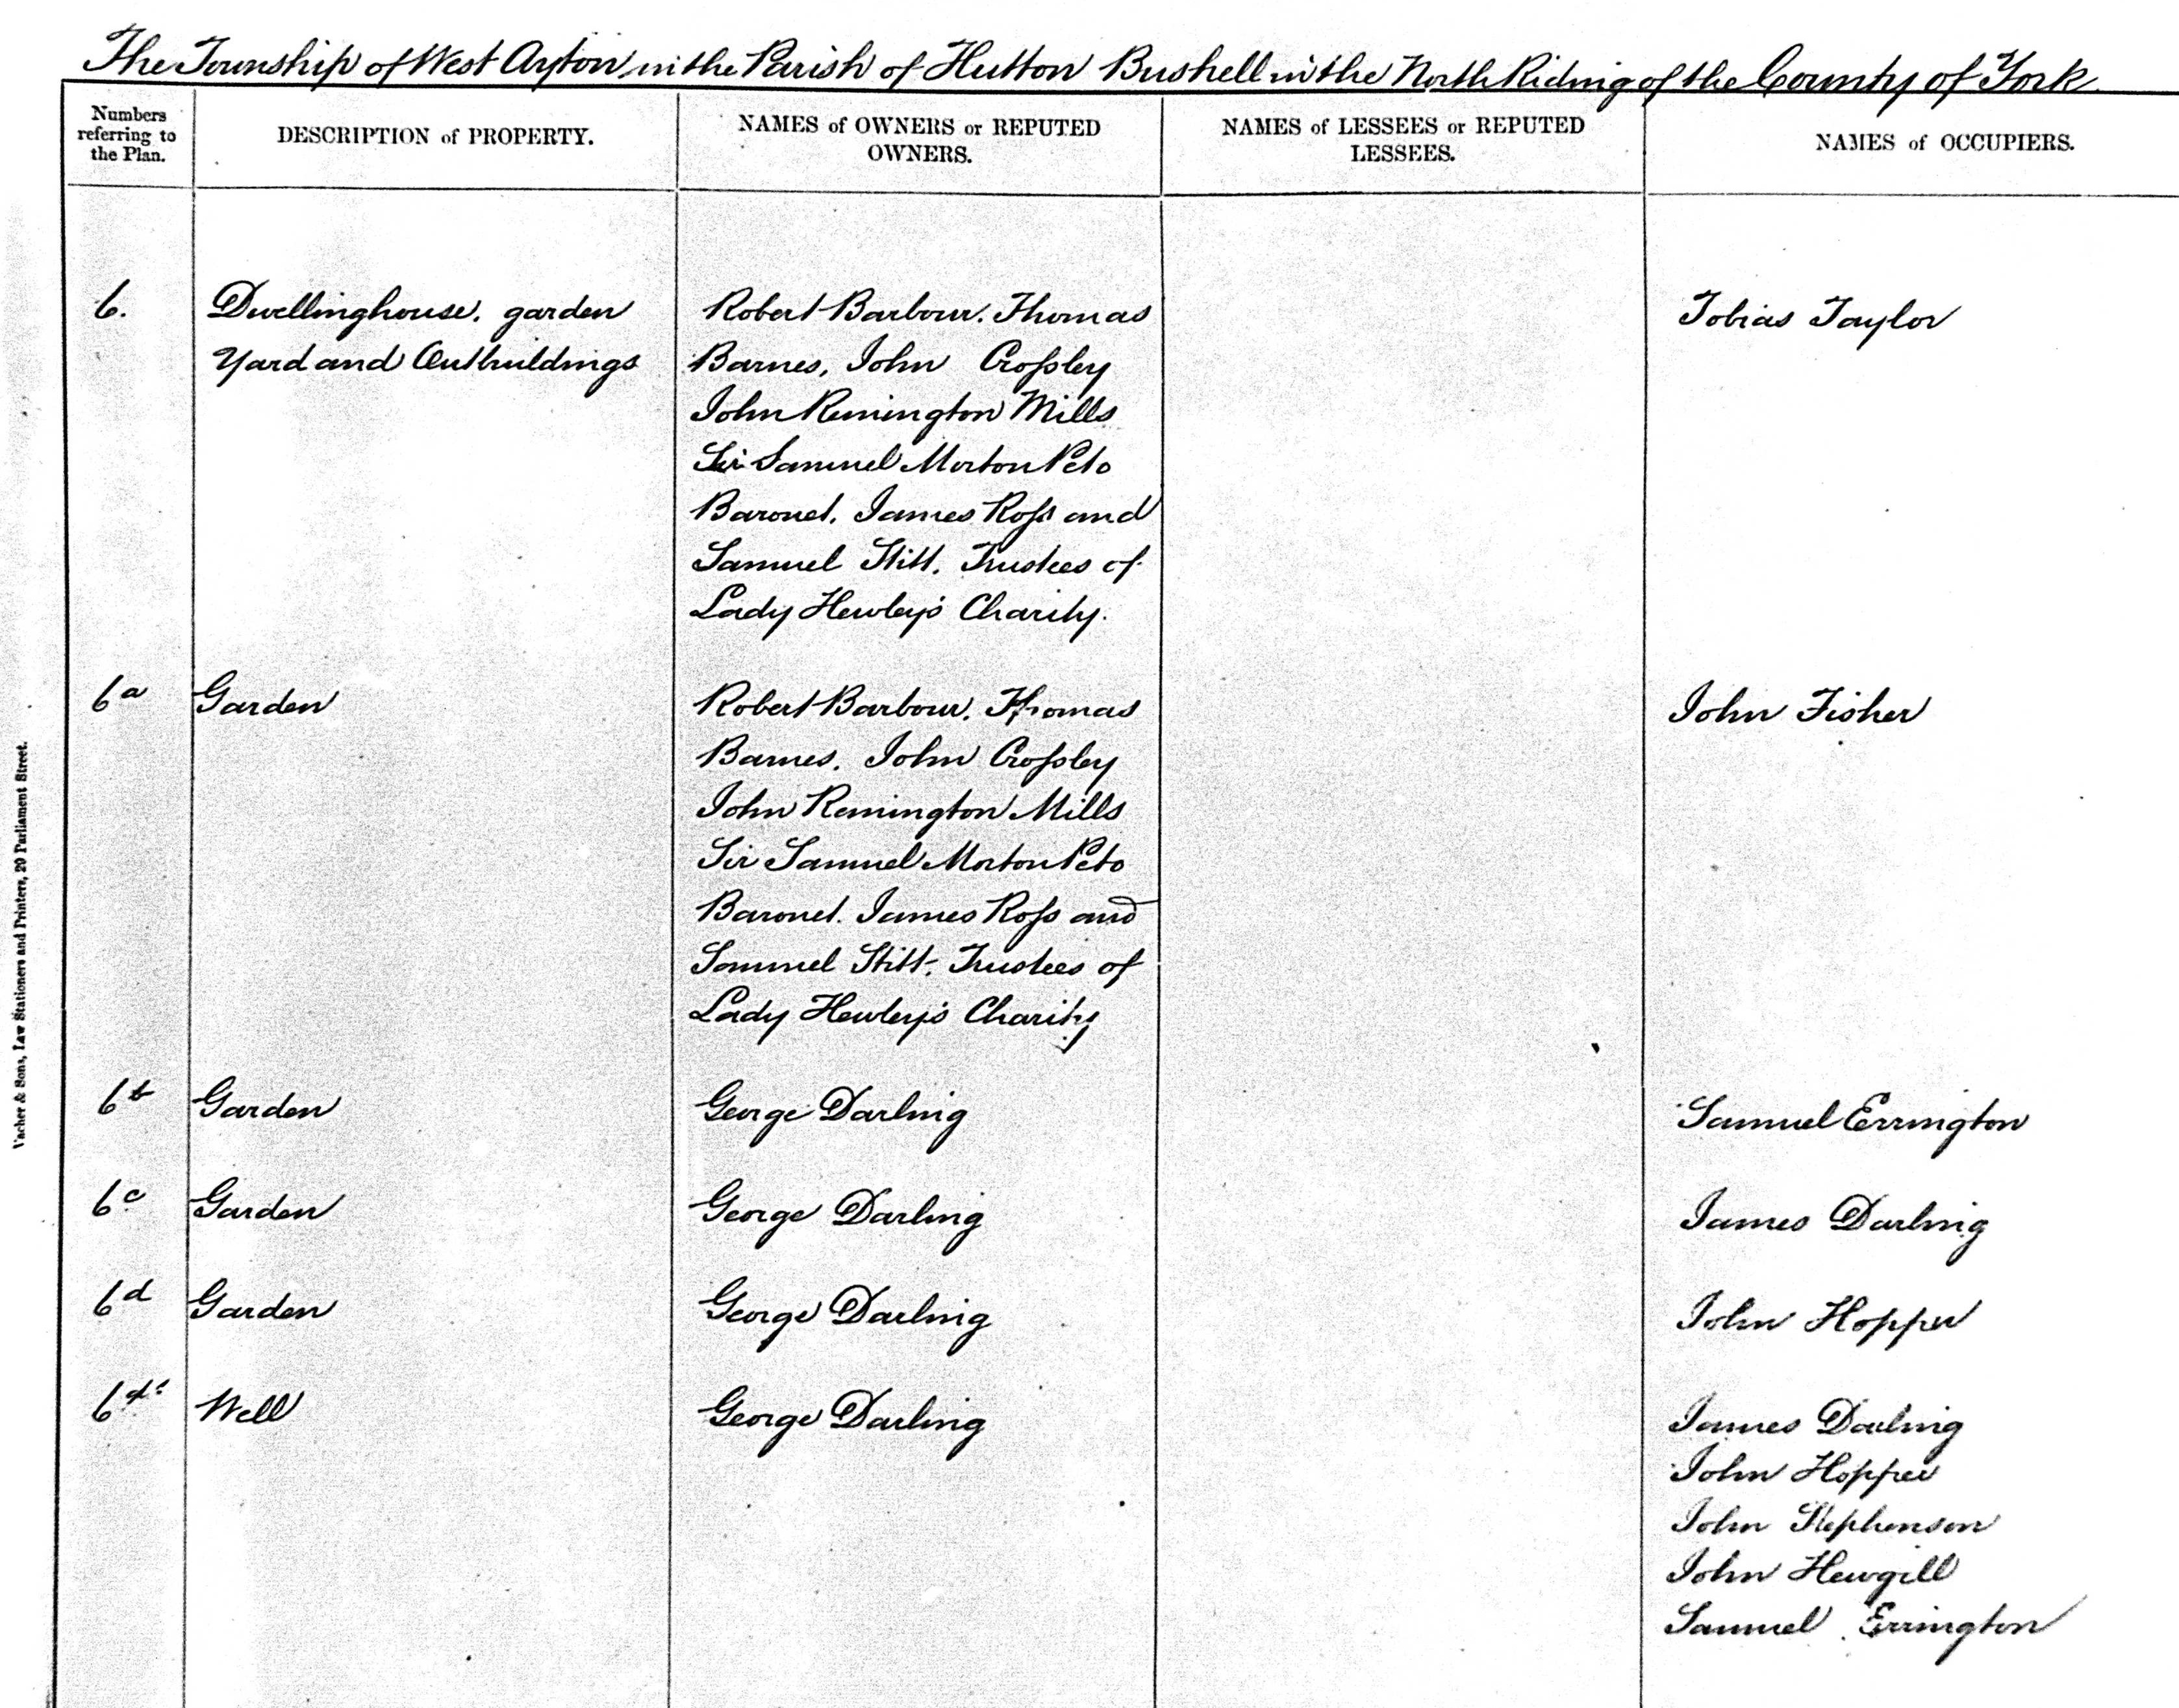 The Township of West Ayton in the Parish of Hutton Bushell in the North Riding of the County of York
Numbers
referring to
the Plan.
DESCRIPTION of PROPERTY.
NAMES of OWNERS or REPUTED
OWNERS.
NAMES of LESSEES or REPUTED
LESSEES.
NAMES of OCCUPIERS.
6.
Dwellinghouse, garden
Yard and Outbuildings
Robert Barbour. Thomas
Barnes, John Croſsley
John Remington Mills
Sir Samuel Morton Peto
Baronet. James Roſs and
Samuel Stitt. Trustees of
Lady Hewley's Charity.
Tobias Taylor
6a
Garden
Robert Barbour. Thomas
Barnes. John Croſsley
John Remington Mills
Sir Samuel Morton Peto
Baronet. James Roſs and
Samuel Stitt. Trustees of
Lady Hewley's Charity
John Fisher
6b
Garden
George Darling
Samuel Errington
6c
Garden
George Darling
James Darling
6d
Garden
George Darling
John Hopper
6d1
Well
George Darling
James Darling
John Hopper
John Stephenson
John Hewgill
Samuel Errington
Vacher & Sons, Law Stationers and Printers, 29 Parliament Street.